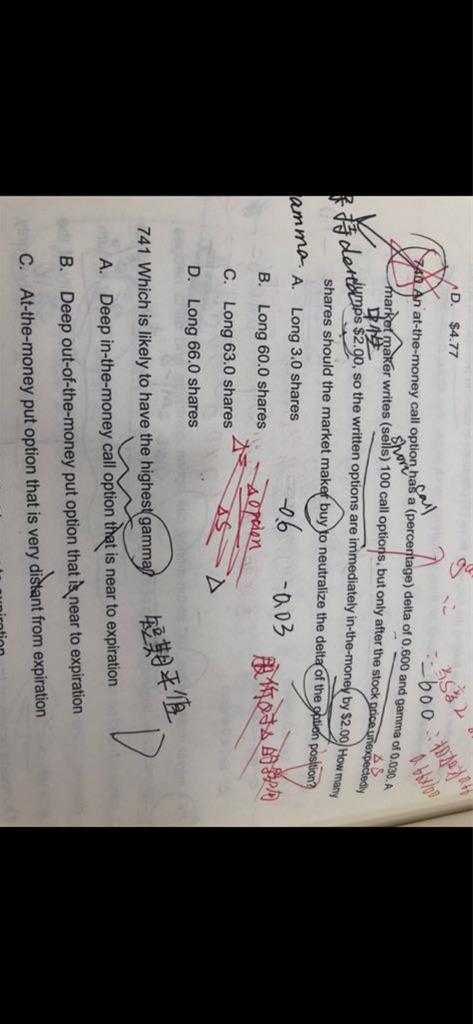 D. $4.77
740 An at-the-money call option has a (percentage) delta of 0.600 and gamma of 0.030. A
market maker writes (sells) 100 call options, but only after the stock price unexpectedly
jumps $2.00, so the written options are immediately in-the-money by $2.00. How many
shares should the market maker buy to neutralize the delta of the option position?
call
short
ΔS
-600
gamma
A. Long 3.0 shares
B. Long 60.0 shares
C. Long 63.0 shares
D. Long 66.0 shares
-0.6
-0.03
Δ option
ΔS
Δ
741 Which is likely to have the highest gamma?
短期平值
D
A. Deep in-the-money call option that is near to expiration
B. Deep out-of-the-money put option that is near to expiration
C. At-the-money put option that is very distant from expiration